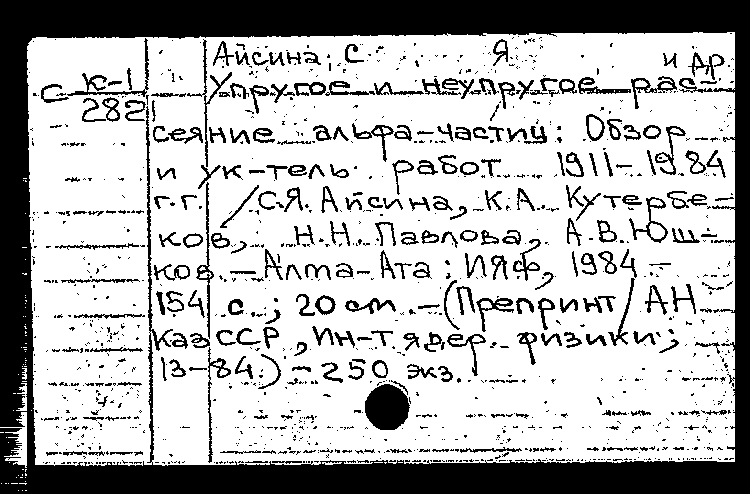 Айсина, С Я и др
С К-1
282
Упругое и неупругое рас-
сеяние альфа-частиц: Обзор
и ук-тель работ 1911-1984
г.г. / С.Я. Айсина, К.А. Кутербе-
ков, Н.Н. Павлова, А.В. Юш-
ков. - Алма-Ата: ИЯФ, 1984 -
154 с.; 20 см. - (Препринт / АН
КазССР, Ин-т ядер. физики;
13-84.) - 250 экз.